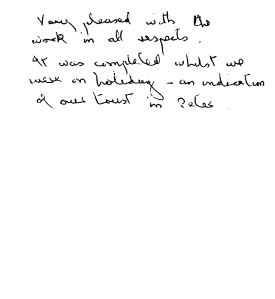 Very pleased with the
work in all respects.
It was completed whilst we
were on holiday - an indication
of our trust in Peter.